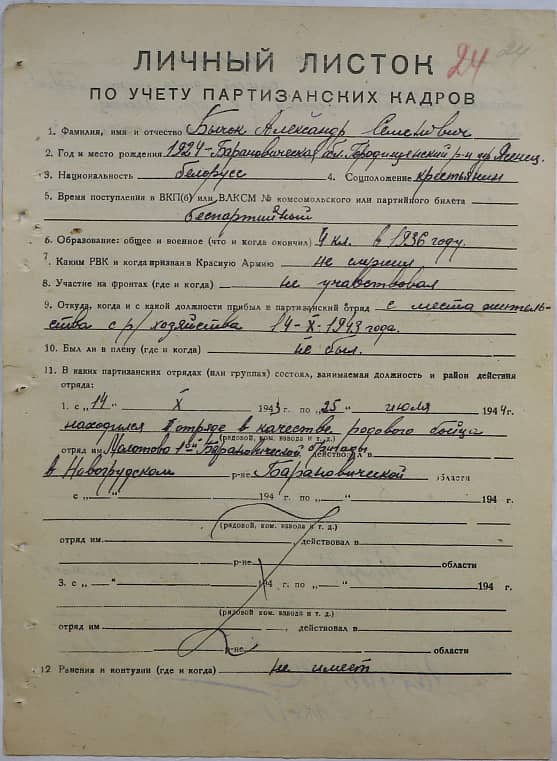 24 24
ЛИЧНЫЙ ЛИСТОК
ПО УЧЕТУ ПАРТИЗАНСКИХ КАДРОВ
1. Фамилия, имя и отчество Бычок Александр Семенович
2. Год и место рождения 1924 - Барановическая обл. Городищенский р-н др. Ясенец.
3. Национальность белорусс 4. Соцположение крестьянин
5. Время поступления в ВКП(б) или ВЛКСМ № комсомольского или партийного билета
беспартийный
6. Образование: общее и военное (что и когда окончил) 4 кл. в 1936 году.
7. Каким РВК и когда призван в Красную Армию не служил
8. Участие на фронтах (где и когда) не участвовал
9. Откуда, когда и с какой должности прибыл в партизанский отряд с места житель-
ства с р/хозяйства 14-X-1943 года.
10. Был ли в плену (где и когда) не был.
11. В каких партизанских отрядах (или группах) состоял, занимаемая должность и район действия
отряда:
1. с „14“ X 1943 г. по „25“ июля 1944 г.
находился в отряде в качестве родового бойца
(рядовой, ком. взвода и т. д.)
отряд им Молотова 1ой Барановической бригады действовал в
в Новогрудском р-не Барановической области
с „—“ 194 г. по „—“ 194 г.
(рядовой, ком. взвода и т. д.)
отряд им. , действовал в
р-не области
3. с „—“ 194 г. по „—“ 194 г.
(рядовой, ком. взвода и т. д.)
отряд им. , действовал в
р-не области
12 Ранения и контузии (где и когда) не имеет